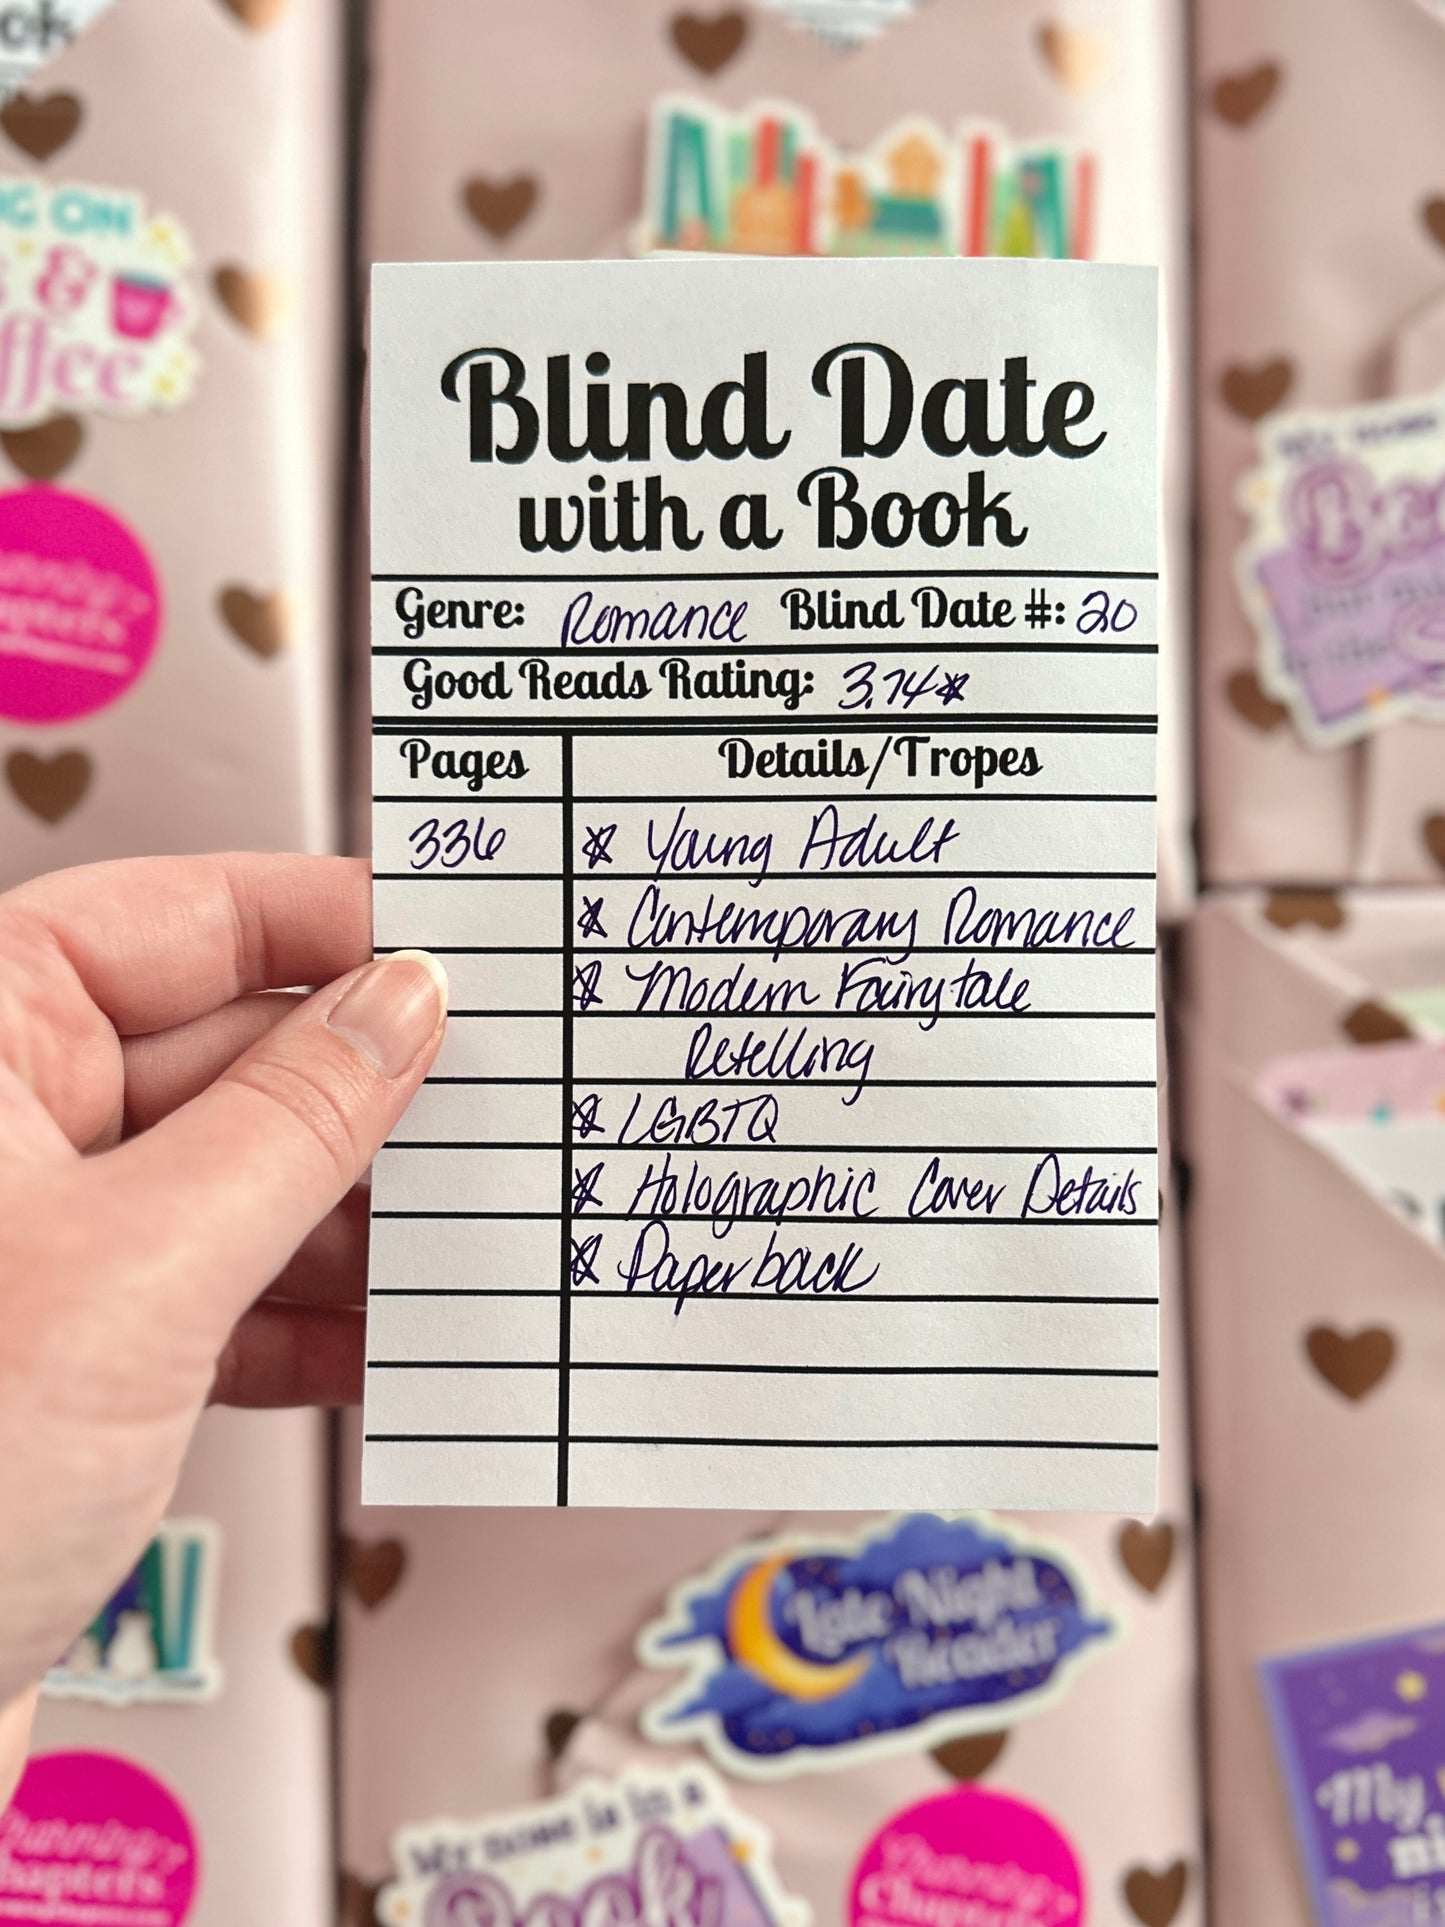 ck
G ON
s &
ffee
My nose
Blind Date
with a Book
Genre: Romance Blind Date #: 20
Good Reads Rating: 3.74☆
Pages Details/Tropes
336 ☆ Young Adult
☆ Contemporary Romance
☆ Modern Fairytale
Retelling
☆ LGBTQ
☆ Holographic Cover Details
☆ Paperback
Late Night
Reader
My nose is in a
Book
Chapters
My
ni